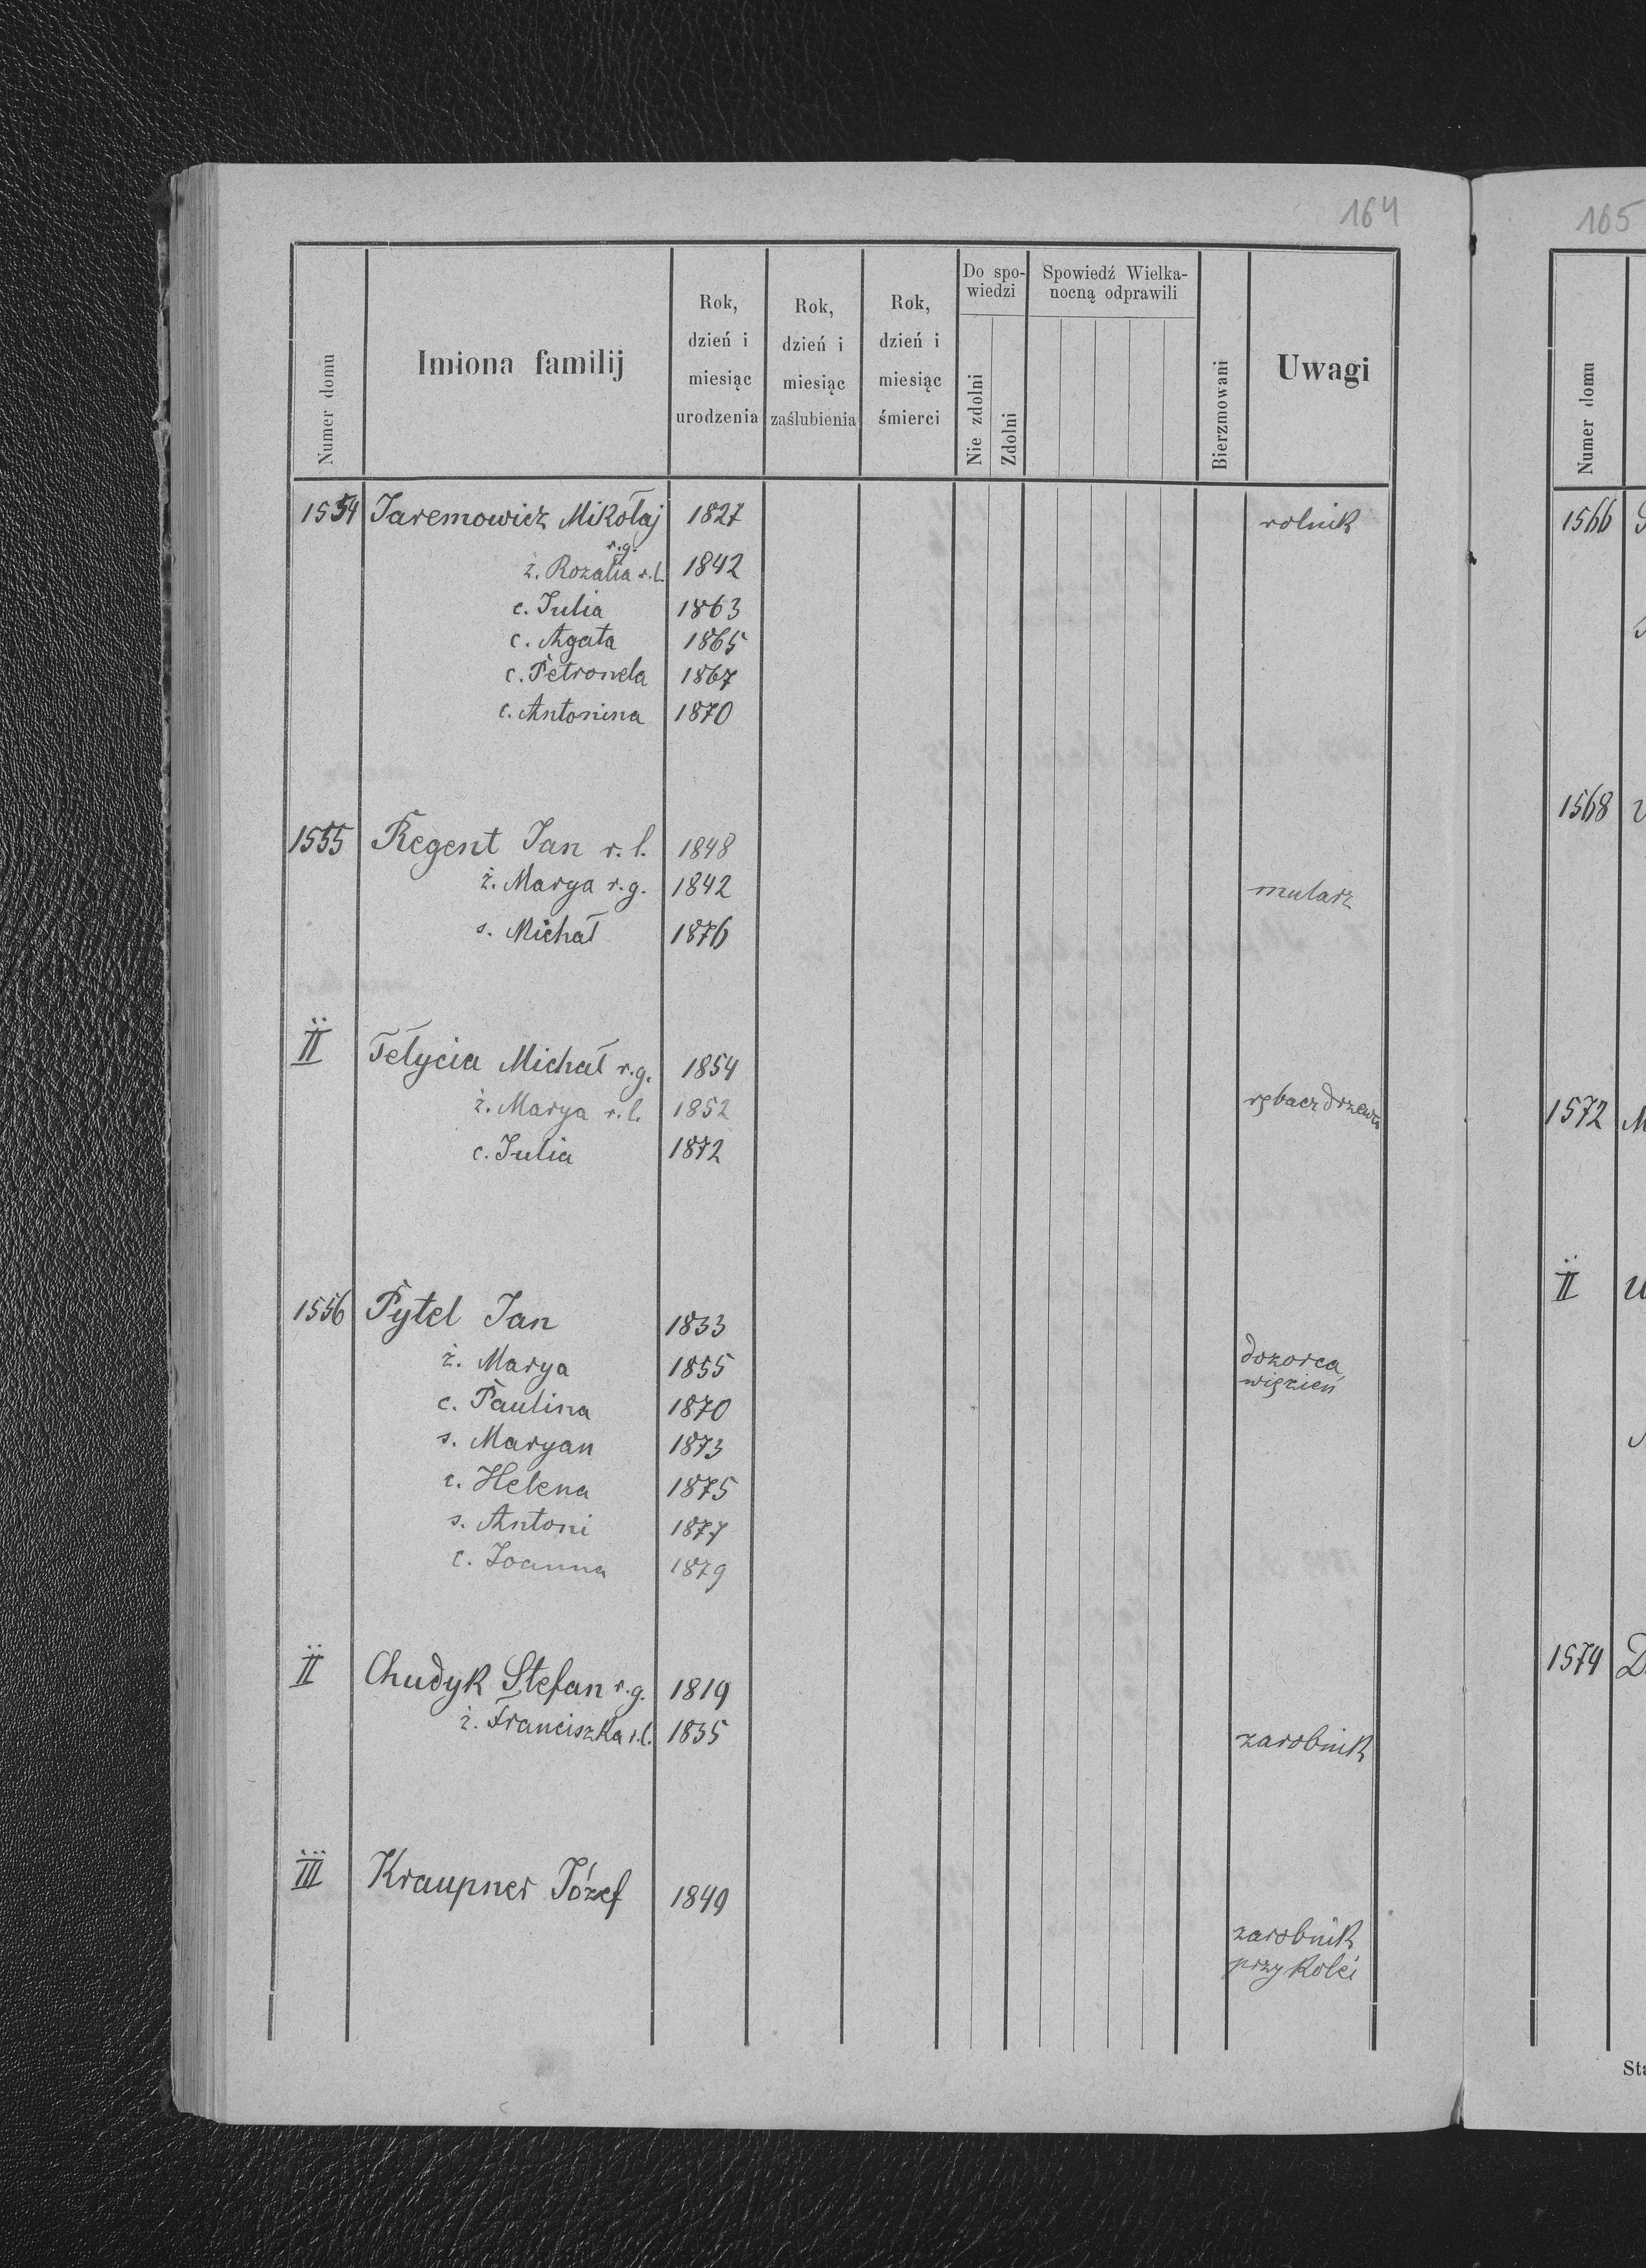 164
105
Numer domu
Imiona familij
Rok, dzień i miesiąc urodzenia
Rok, dzień i miesiąc zaślubienia
Rok, dzień i miesiąc śmierci
Do spo-
wiedzi
Nie zdolni
Zdolni
Spowiedź Wielka-
nocną odprawili
Bierzmowani
Uwagi
Numer domu
1554 Jaremowicz Mikołaj 1827 rolnik
r.g.
ż. Rozalia r.l. 1842
c. Julia 1863
c. Agata 1865
c. Petronela 1867
c. Antonina 1870
1555 Regent Jan r. l. 1848
ż. Marya r. g. 1842 mularz
s. Michał 1876
II Telycia Michał r.g. 1854
ż. Marya r. l. 1852 rębacz drzewa
c. Julia 1872
1556 Pytel Jan 1833
ż. Marya 1855 dozorca
więzień
c. Paulina 1870
s. Maryan 1873
c. Helena 1875
s. Antoni 1877
c. Joanna 1879
II Chudyk Stefan r.g. 1819
ż. Franciszka r.l. 1835 zarobnik
III Kraupner Józef 1849
zarobnik
przy kolei
1566
1568
1572 M
II
1574 D